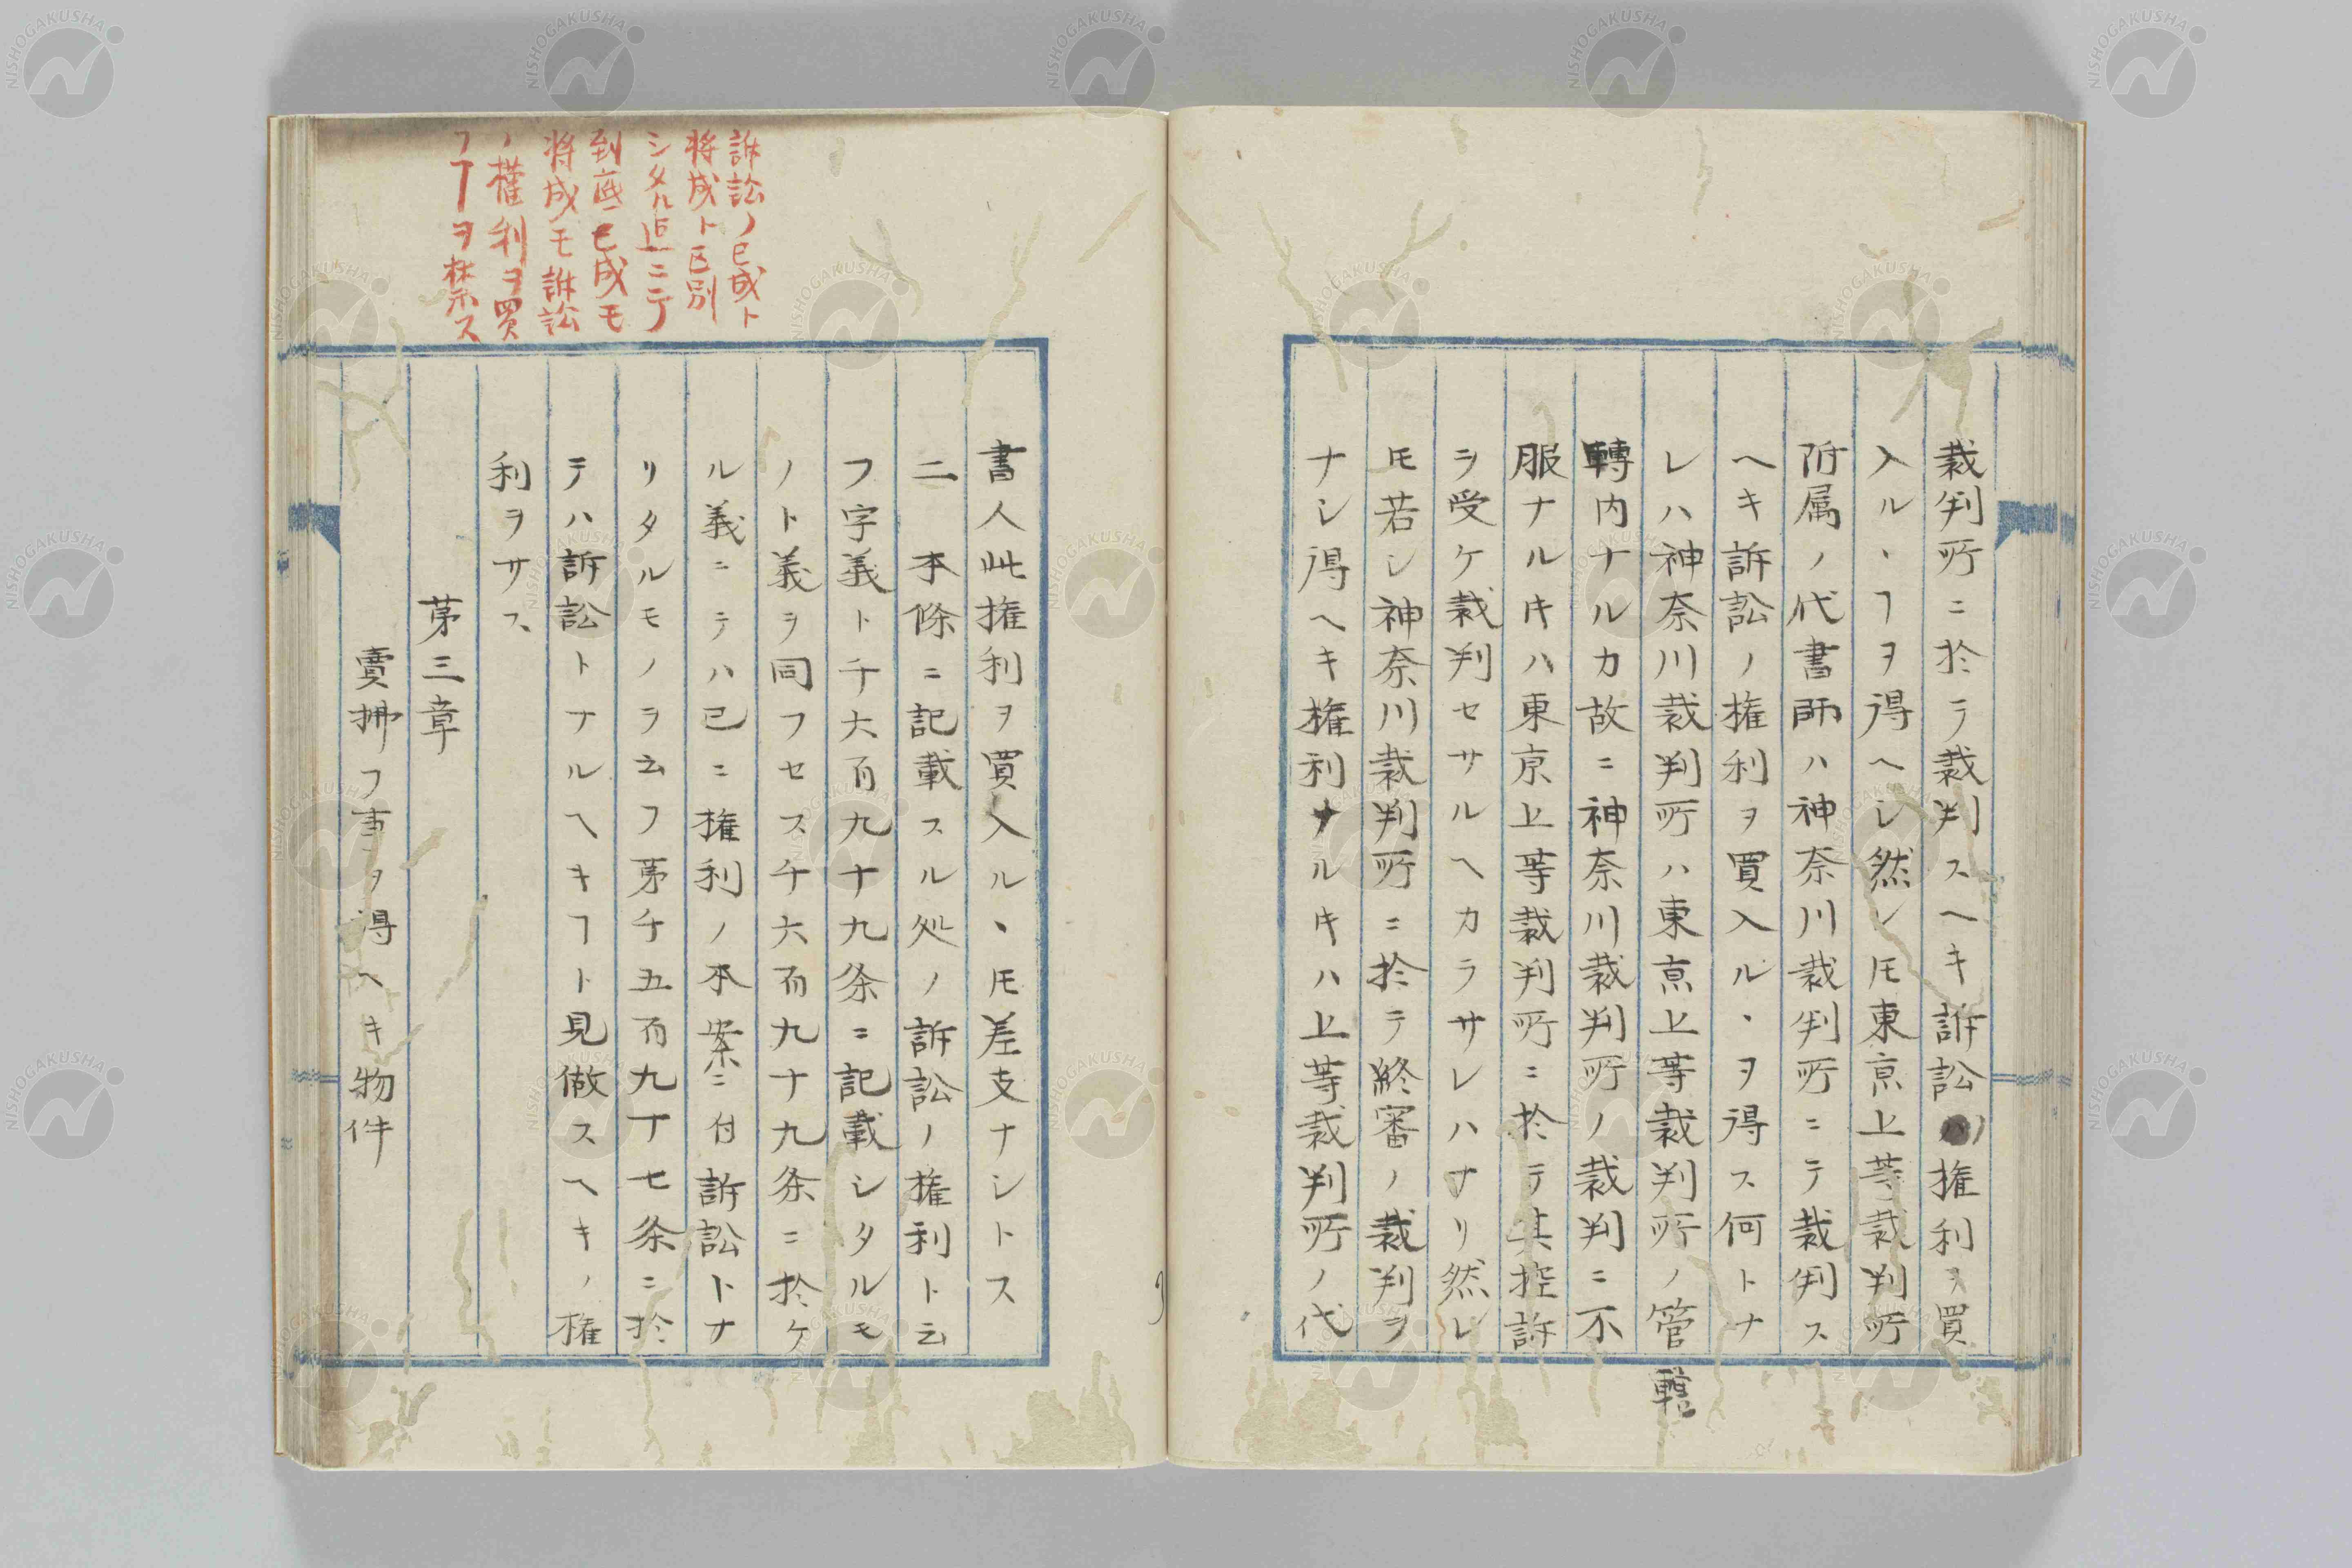 裁判所ニ於テ裁判スヘキ訴訟ノ権利ヲ買
入ル、ヿヲ得ヘシ然レ𪜈東京上等裁判所
附属ノ代書師ハ神奈川裁判所ニテ裁判ス
ヘキ訴訟ノ権利ヲ買入ル、ヲ得ス何トナ
レハ神奈川裁判所ハ東京上等裁判所ノ管轄
轉内ナルカ故ニ神奈川裁判所ノ裁判ニ不
服ナル𪜈ハ東京上等裁判所ニ於テ其控訴
ヲ受ケ裁判セサルヘカラサレハナリ然レ
𪜈若シ神奈川裁判所ニ於テ終審ノ裁判ヲ
ナシ得ヘキ権利ナルキハ上等裁判所ノ代
書人此権利ヲ買入ル、𪜈差支ナシトス
二 本條ニ記載スル処ノ訴訟ノ権利ト云
フ字義ト千六百九十九条ニ記載シタルモ
ノト義ヲ同フセス千六百九十九条ニ於ケ
ル義ニテハ已ニ権利ノ本案ニ付訴訟トナ
リタルモノヲ云フ苐千五百九十七条ニ於
テハ訴訟トナルヘキヿト見做スヘキノ権
利ヲサス
苐三章
賣拂フ事ヲ得ヘキ物件
訴訟ノ已成ト
將成ト区別
シタル迠ニテ
到底已成モ
將成モ訴訟
ノ權利ヲ買
フヿヲ禁ス
NISHOGAKUSHA